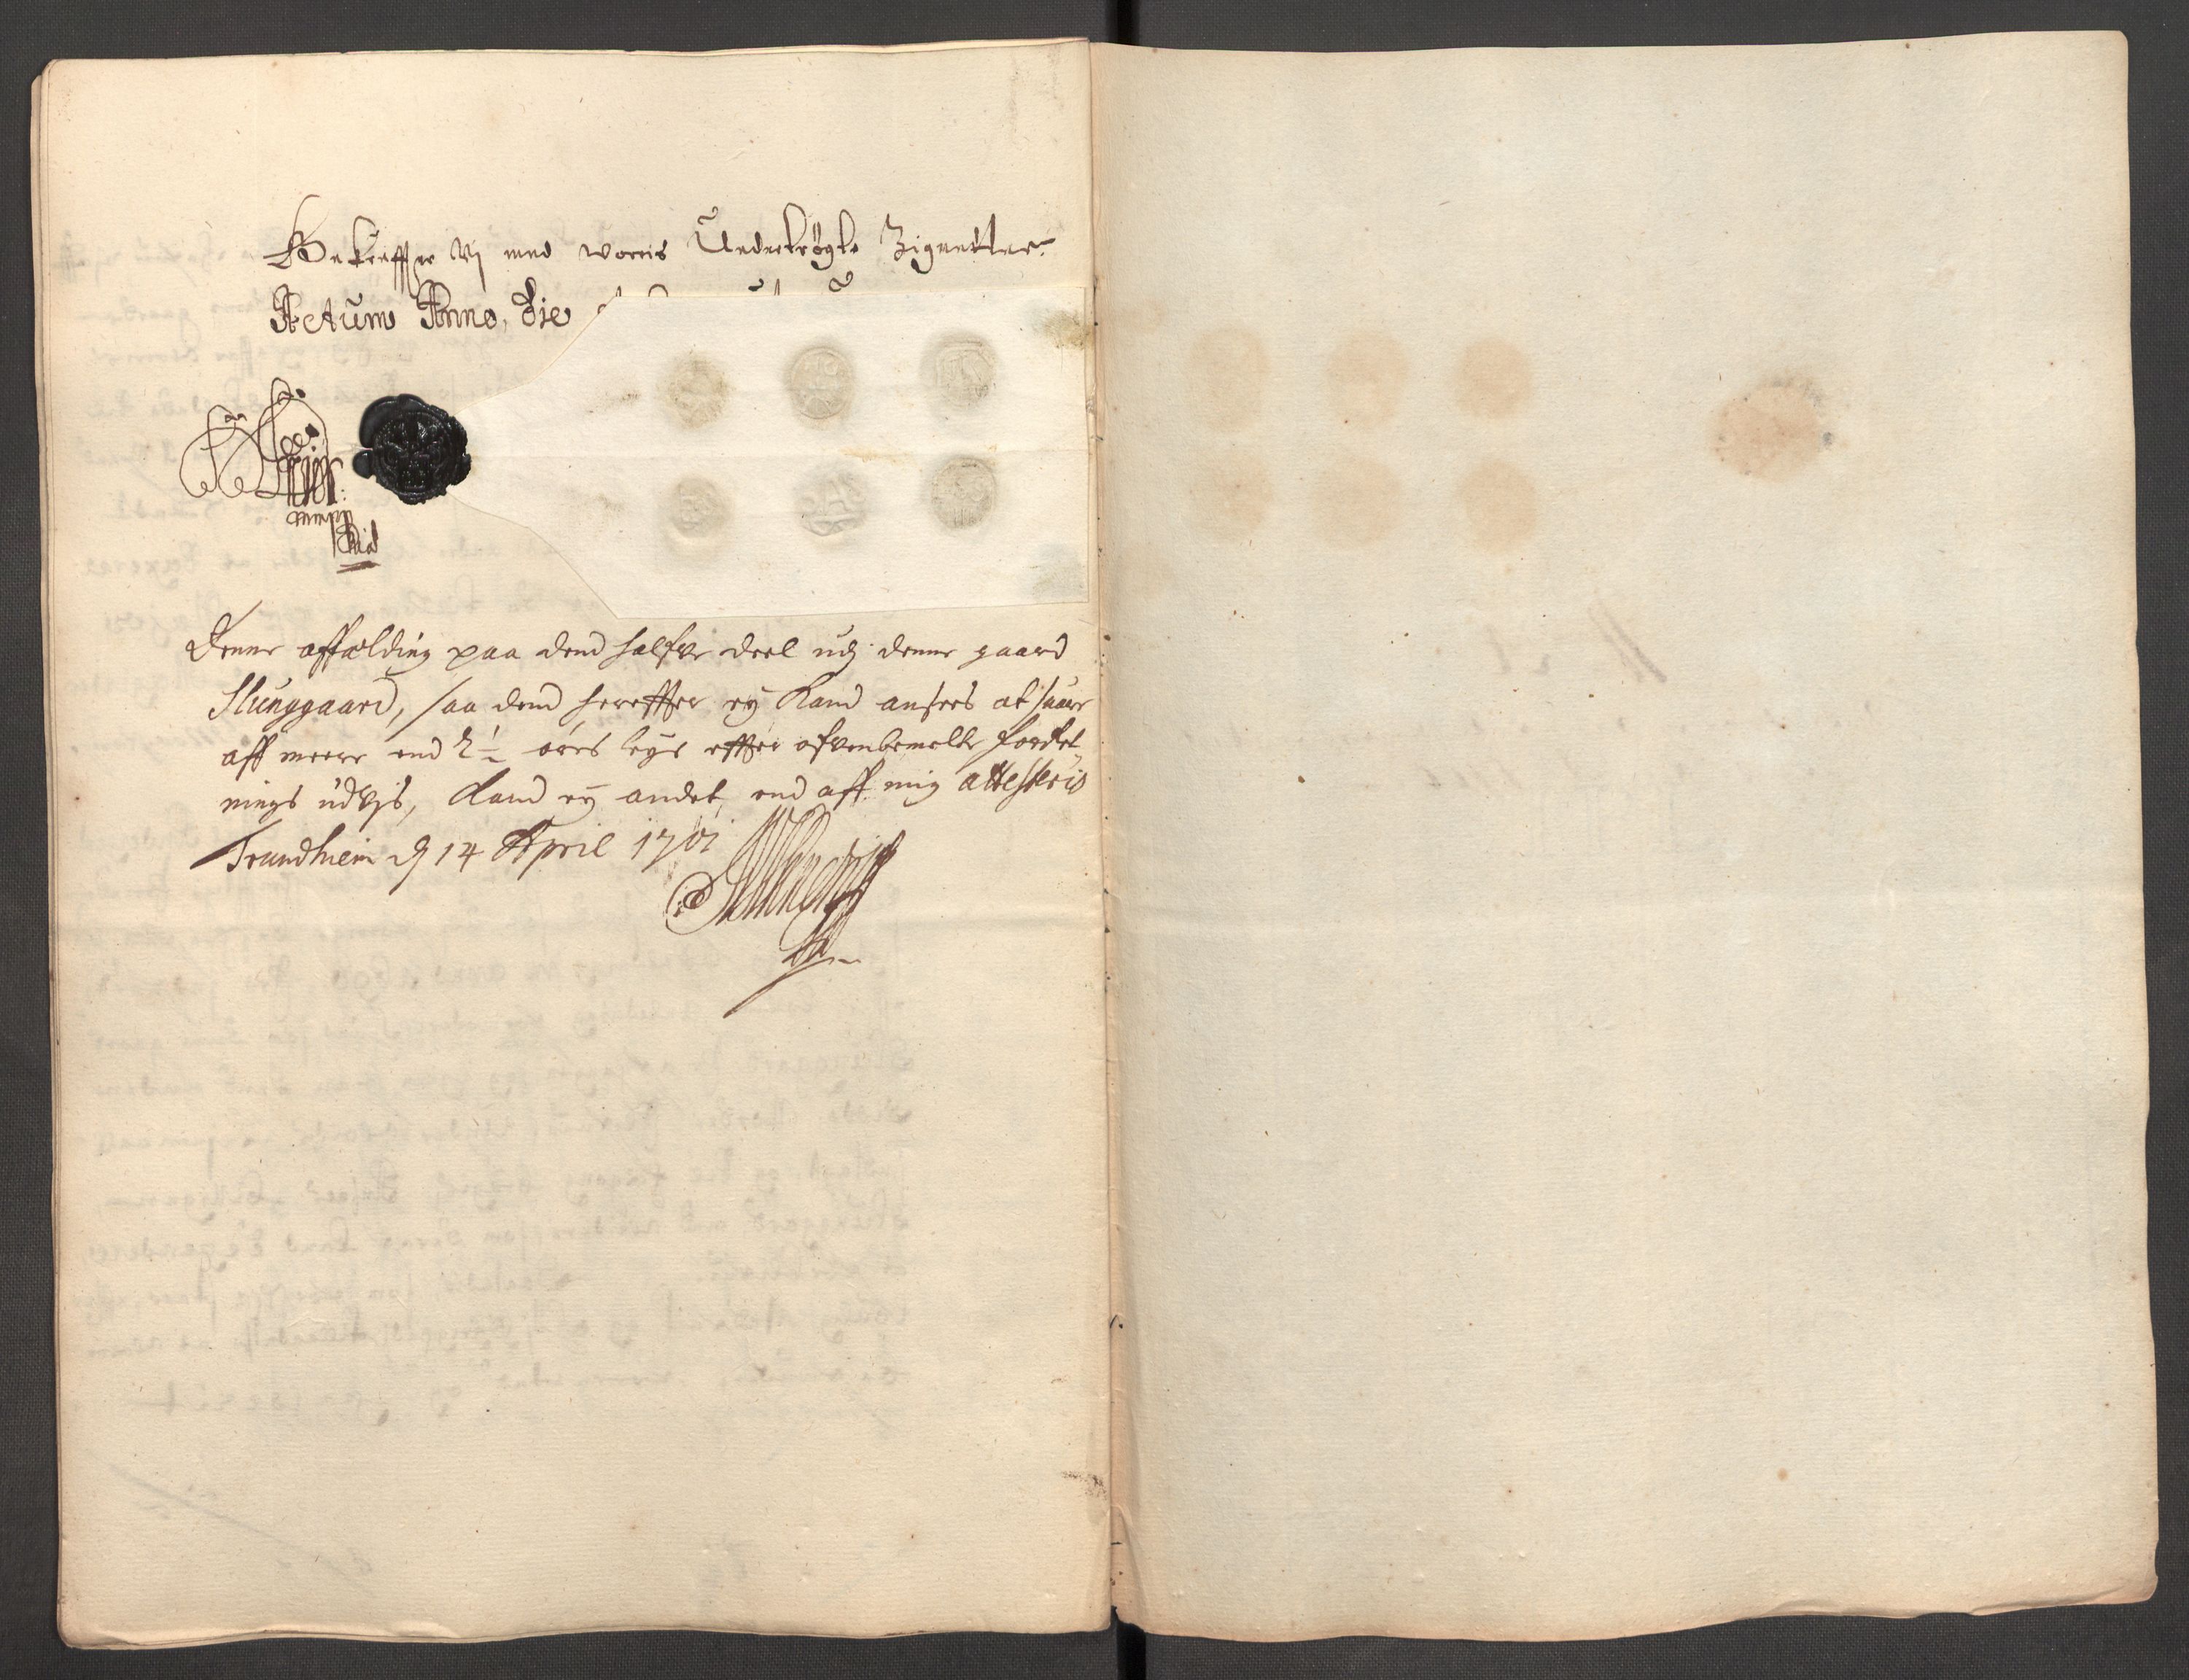 Bekreffter Vj med worris Undertrøgte Zignetter
Actum Anno, Die
mppria
Denne affælding paa dend halfve deel udj denne gaard
Slunggaard, saa dend hereffter ey kand ansees at suare
aff meere end 2½ øres leye effter ofvenbemelte forret-
nings udvjs, kand ey andet end aff mig attesteris
Trundhiem d 14 April 1701